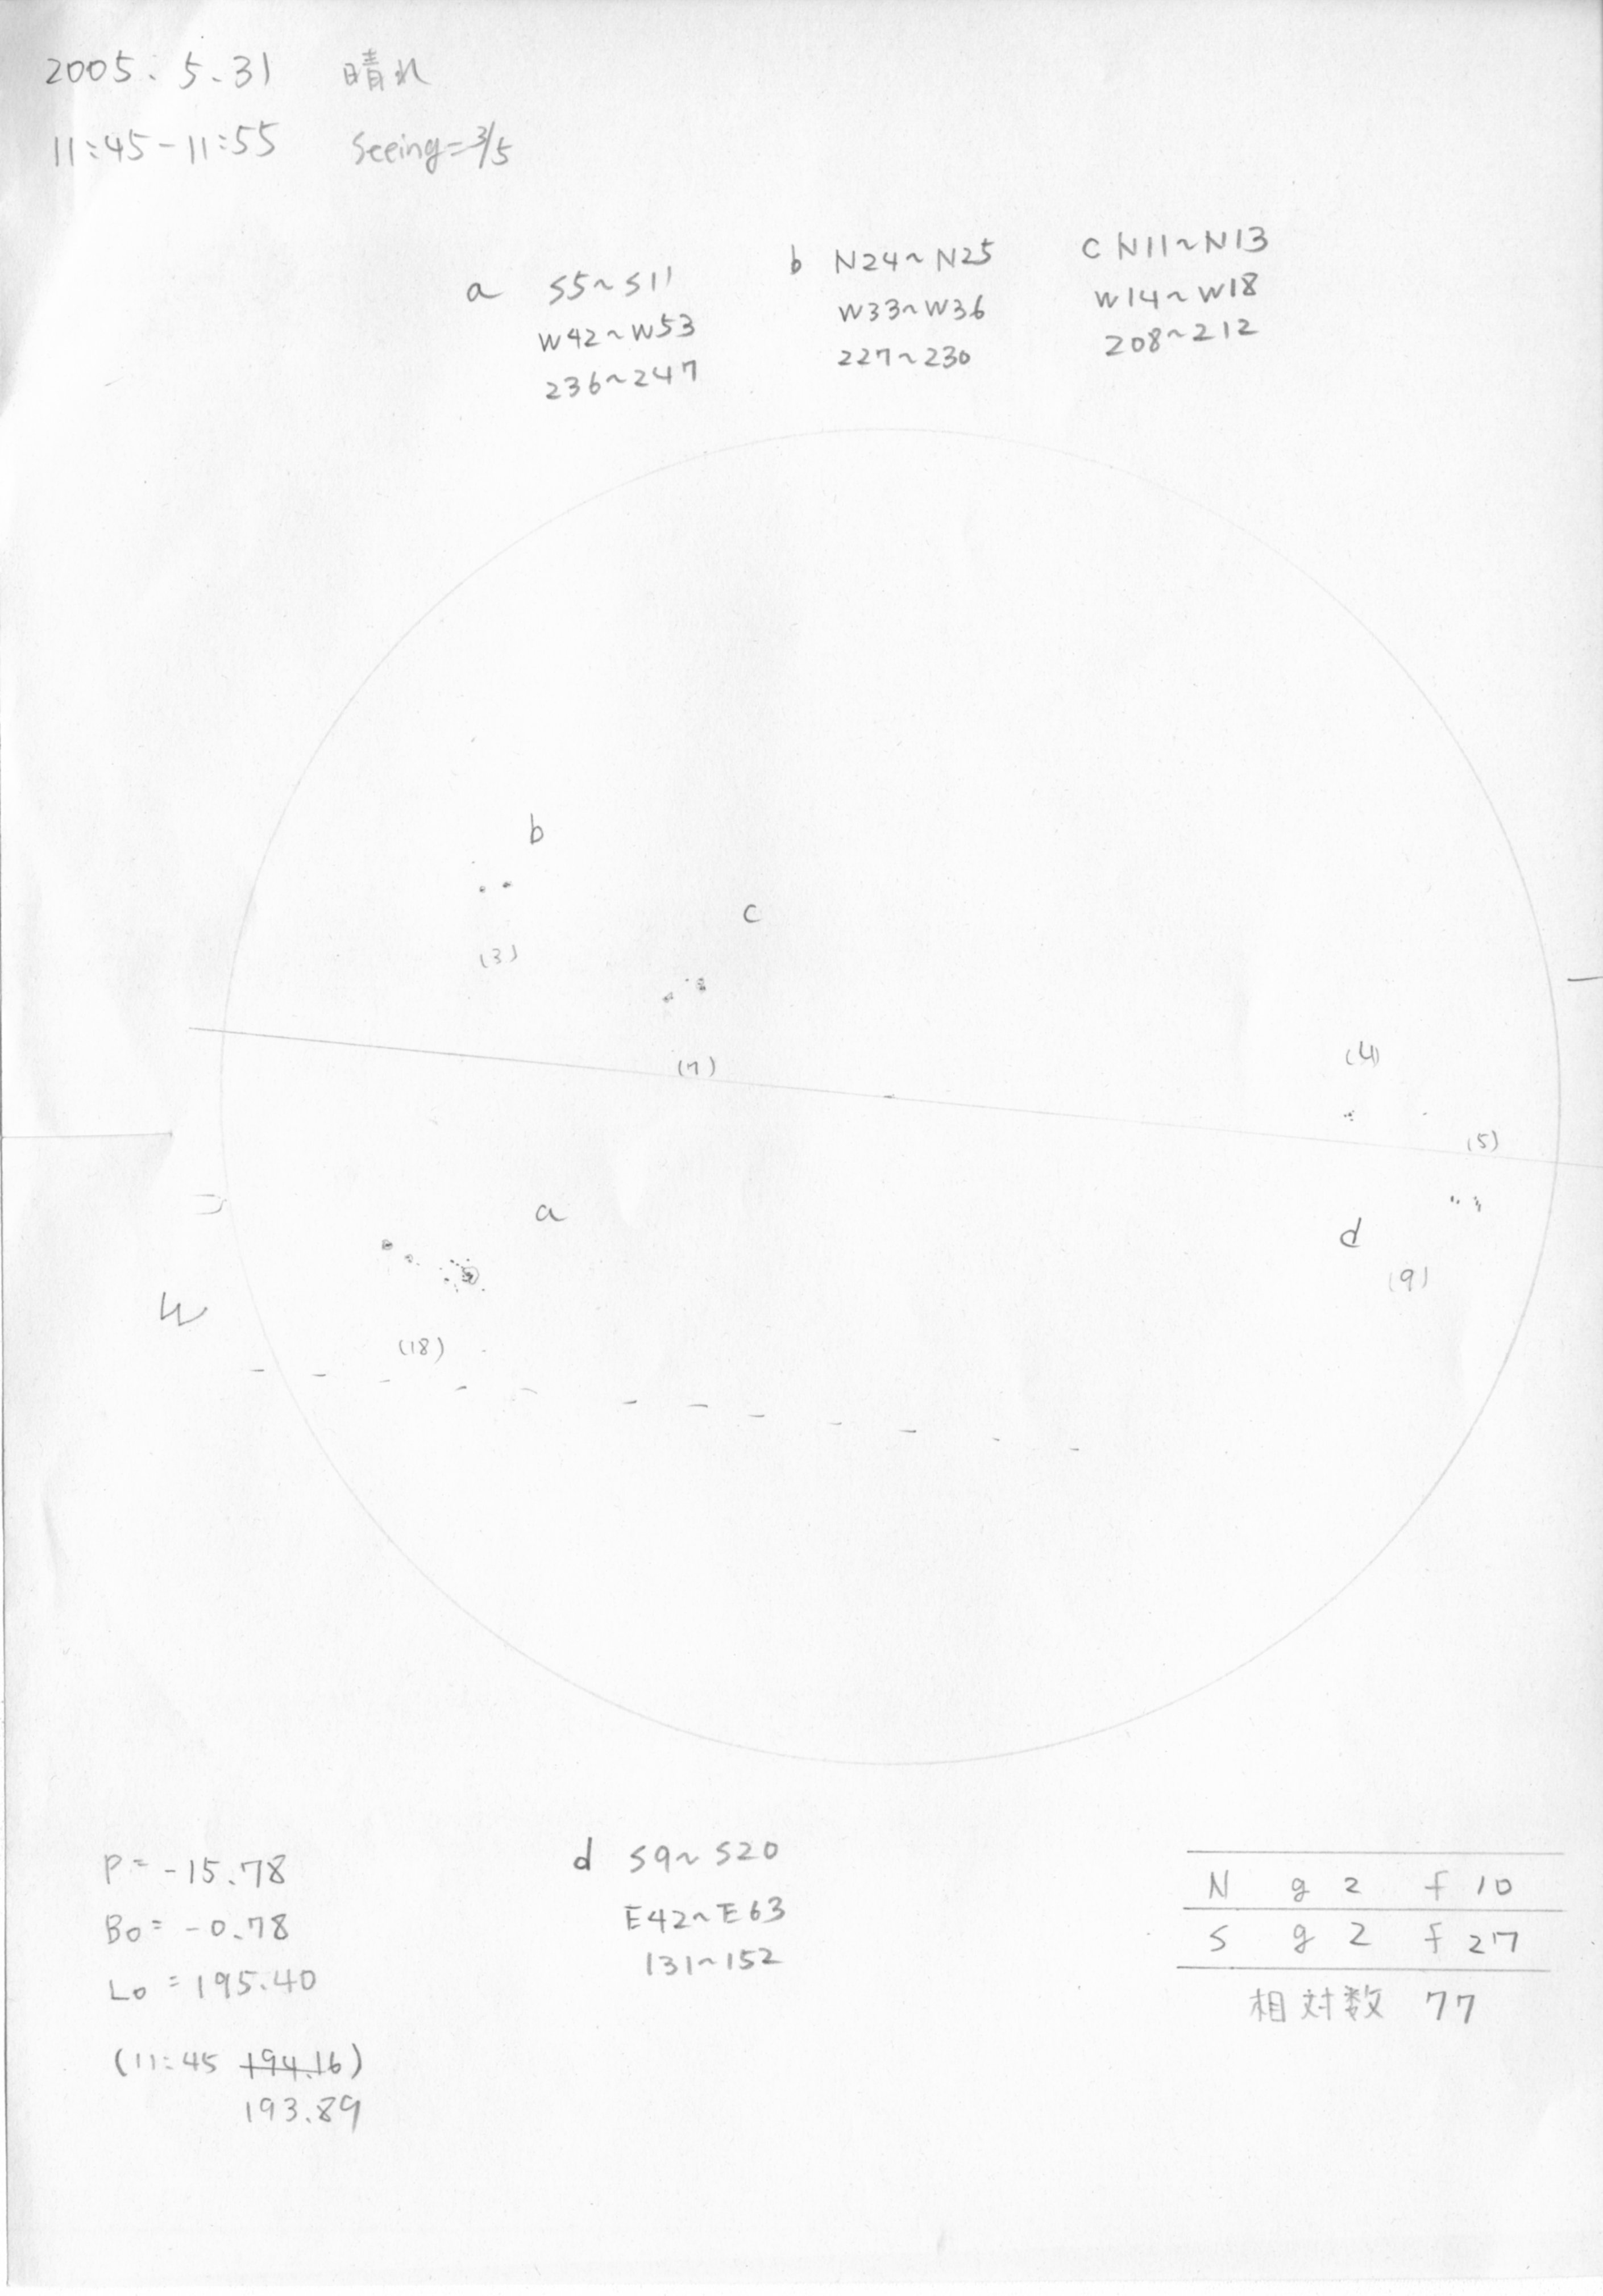 2005.5.31 晴れ
11:45-11:55 Seeing=3/5
a S5~S11
W42~W53
236~247
b N24~N25
W33~W36
227~230
C N11~N13
W14~W18
208~212
b
(3)
c
(7)
(4)
(5)
a
d
(9)
W
(18)
P=-15.78
B0=-0.78
L0=195.40
(11:45 194.16)
193.89
d S9~S20
E42~E63
131~152
N g 2 f 10
S g 2 f 27
相対数 77